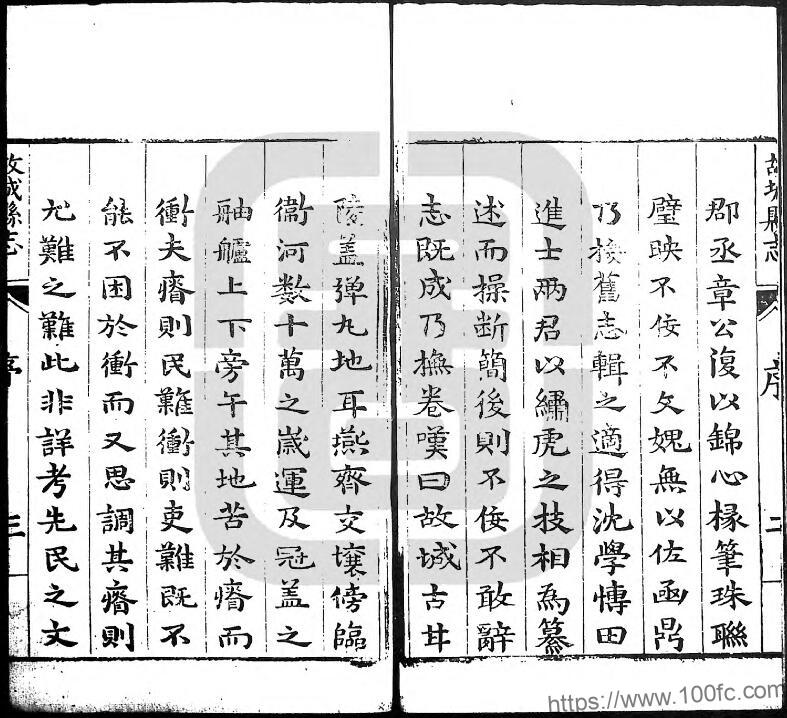 故城縣志
序
二
郡丞章公復以錦心椽筆珠聯
璧映不佞不文媿無以佐函鼎
乃挍舊志輯之適得沈學愽田
進士兩君以繡虎之技相為纂
述而操断簡後則不佞不敢辭
志既成乃撫卷嘆曰故城古甘
陵盖弹丸地耳燕齊交壤傍臨
衞河數十萬之嵗運及冠盖之
舳艫上下旁午其地苦於瘠而
衝夫瘠則民難衝則吏難既不
能不困於衝而又思調其瘠則
尤難之難此非詳考先民之文
故城縣志
序
三
https://www.100fc.com